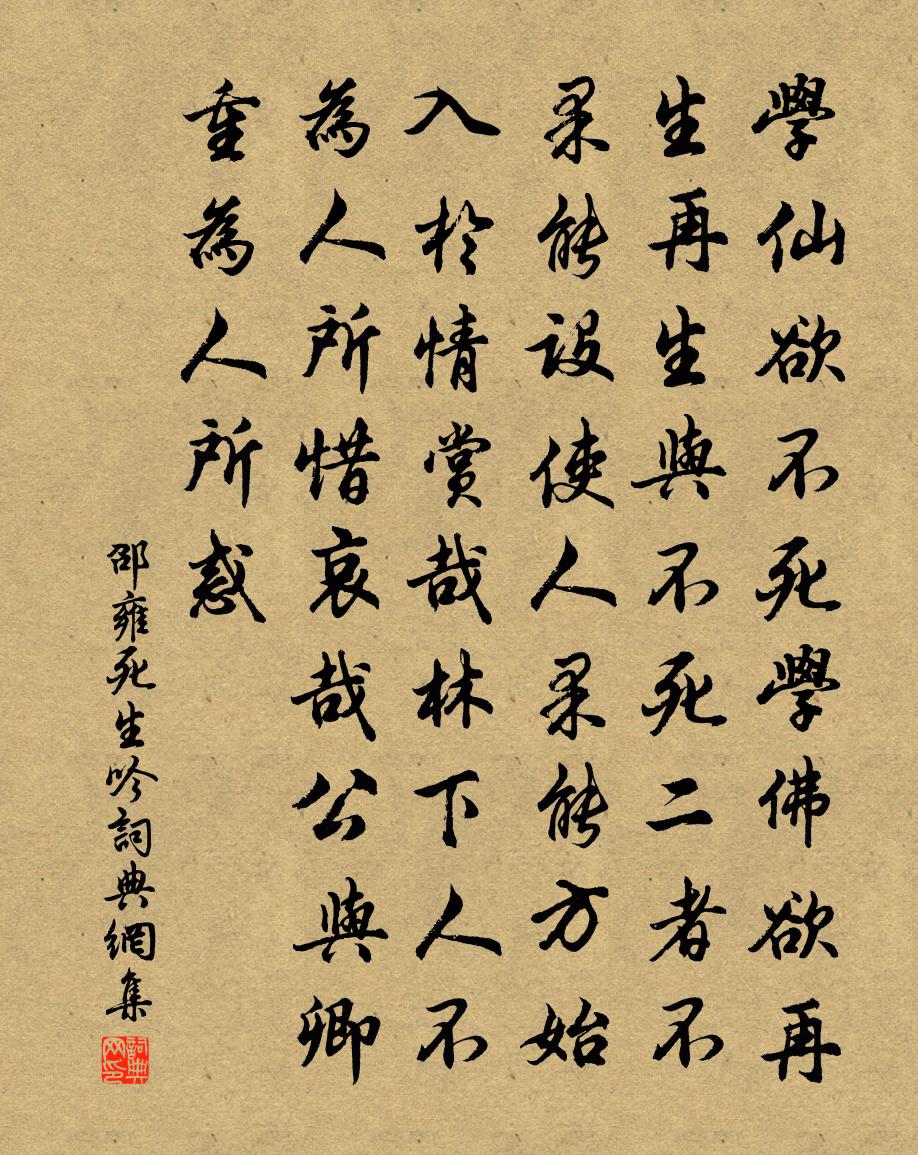 學仙欲不死學佛欲再
生再生與不死二者不
果能設使人果能方始
入於情賞哉林下人不
為人所惜哀哉公與卿
重為人所惑
邵雍死生吟詞典網集
詞典
网印